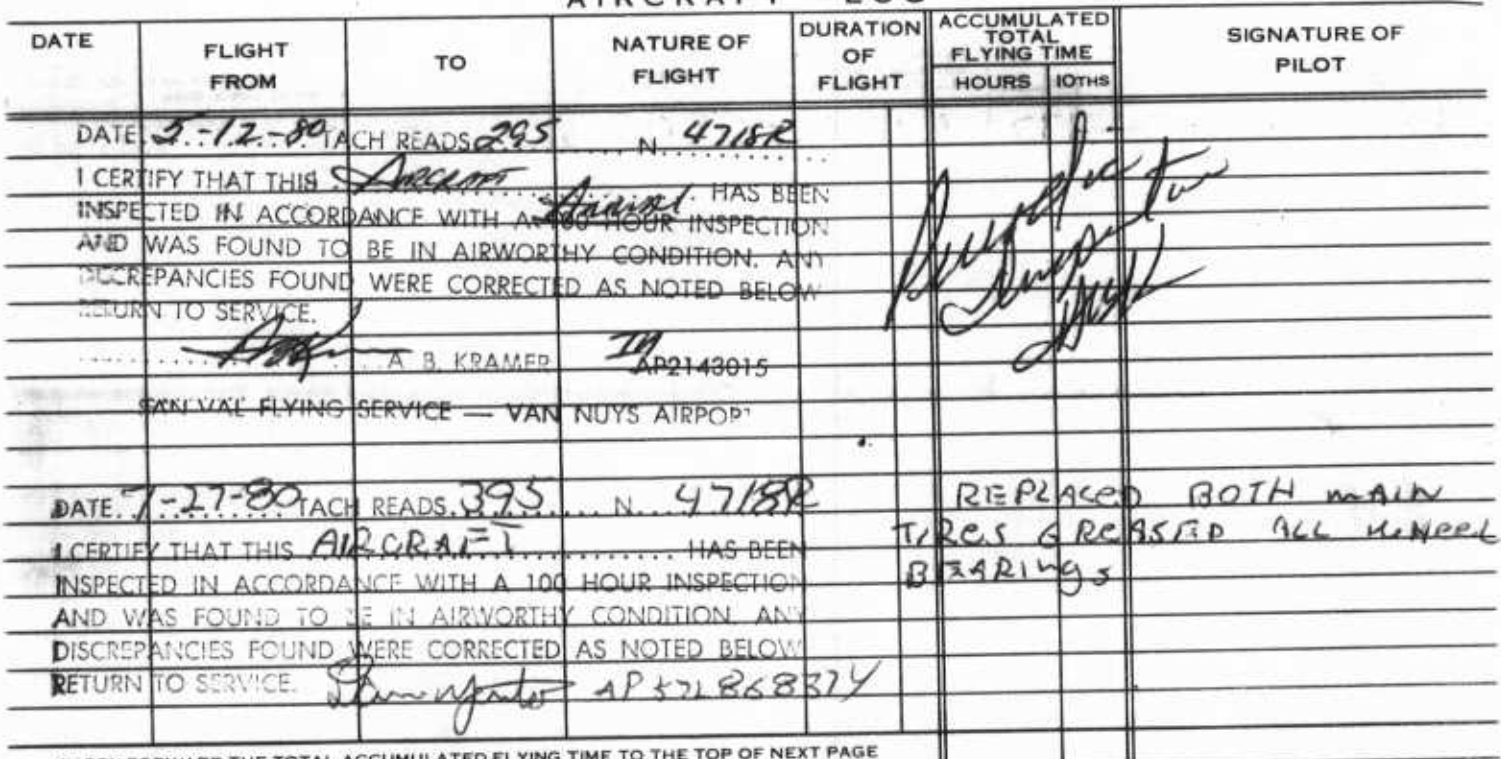 AIRCRAFT LOG
DATE FLIGHT FROM TO NATURE OF FLIGHT DURATION OF FLIGHT ACCUMULATED TOTAL FLYING TIME HOURS 10THS SIGNATURE OF PILOT
DATE. 5-12-80 TACH READS 295 N. 4718R
I CERTIFY THAT THIS AIRCRAFT HAS BEEN
INSPECTED IN ACCORDANCE WITH A 100 HOUR INSPECTION
Annual
AND WAS FOUND TO BE IN AIRWORTHY CONDITION. ANY
DISCREPANCIES FOUND WERE CORRECTED AS NOTED BELOW
RETURN TO SERVICE.
A. B. KRAMER AP2143015
SAN VAL FLYING SERVICE — VAN NUYS AIRPORT
DATE. 7-27-80 TACH READS. 395 N. 4718R
I CERTIFY THAT THIS AIRCRAFT HAS BEEN
INSPECTED IN ACCORDANCE WITH A 100 HOUR INSPECTION
AND WAS FOUND TO BE IN AIRWORTHY CONDITION. ANY
DISCREPANCIES FOUND WERE CORRECTED AS NOTED BELOW
RETURN TO SERVICE. AP 572868374
REPLACED BOTH MAIN
TIRES GREASED ALL WHEEL
BEARINGS
FORWARD THE TOTAL ACCUMULATED FLYING TIME TO THE TOP OF NEXT PAGE